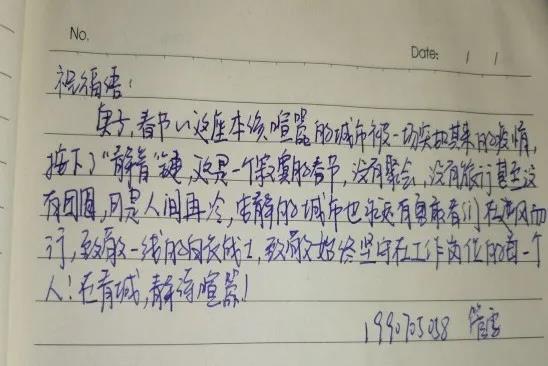 No.
Date: / /
祝福语:
庚子,春节,这座本该喧嚣的城市被一场突如其来的疫情,
按下了"静音"键,这是一个寂寞的春节,没有聚会,没有旅行甚至没
有团圆,可是人间再冷,安静的城市也永远有勇敢者们在逆风而
行,致敬一线的白衣战士,致敬始终坚守在工作岗位的每一个
人!无声城,静待喧嚣!
199070508 管雪